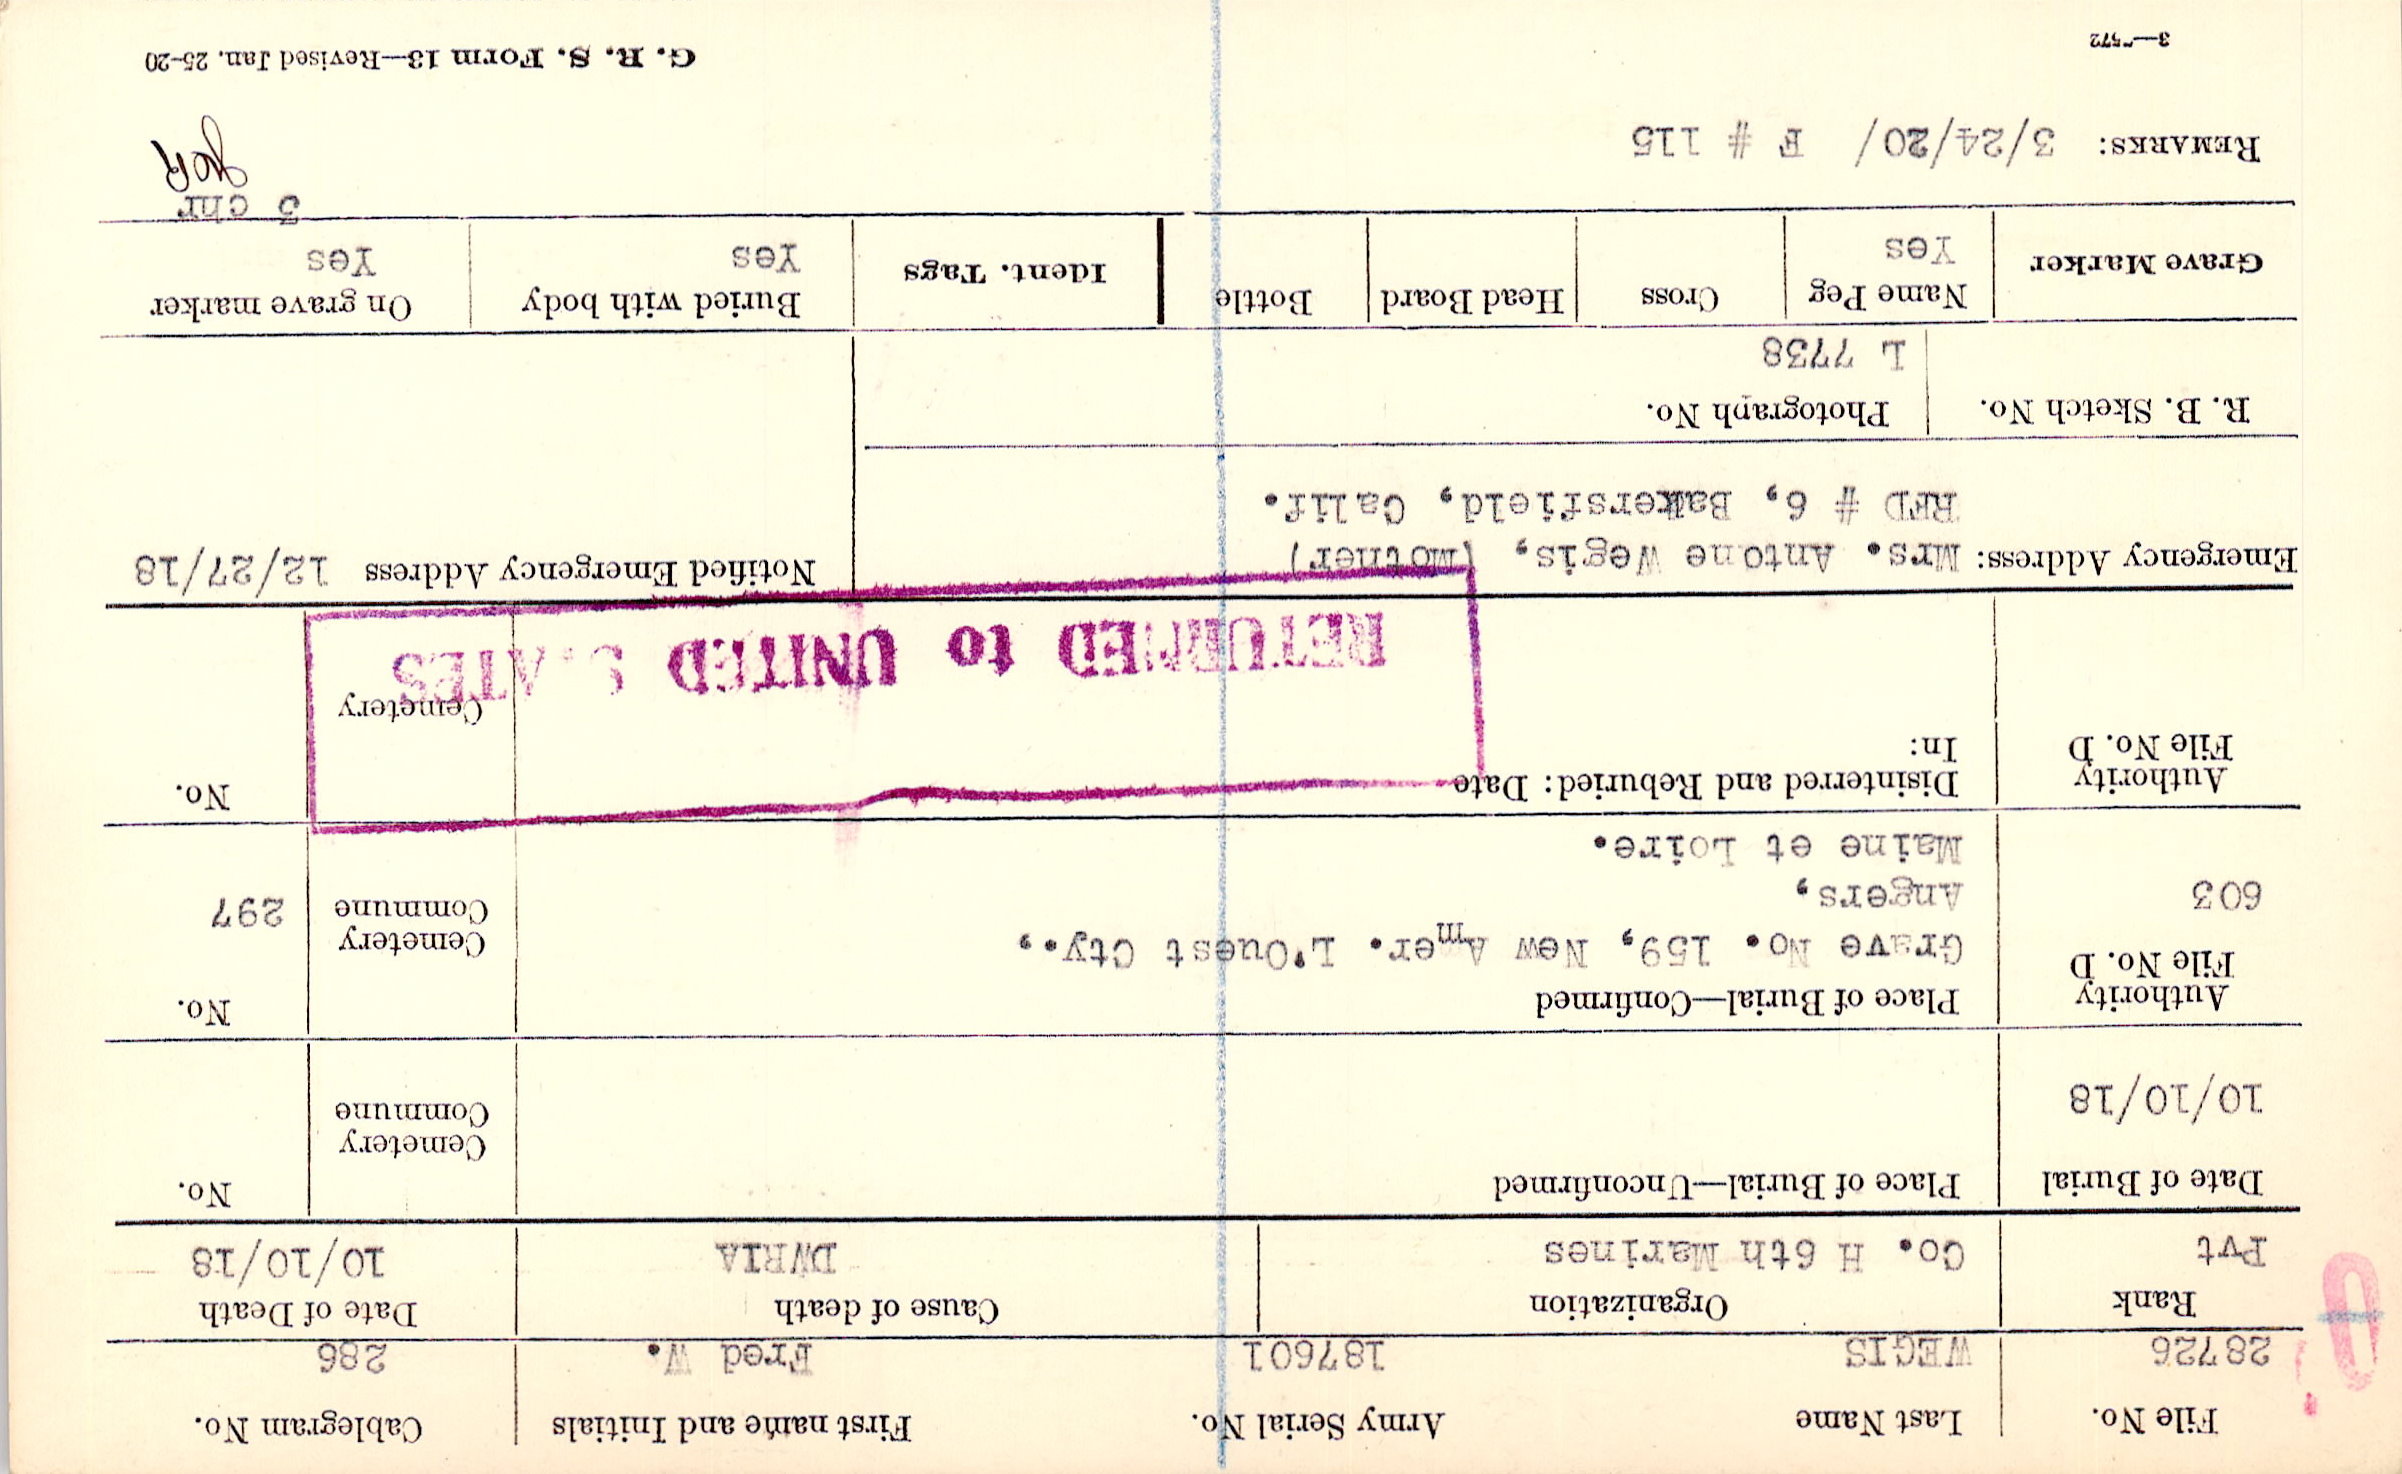 File No. Last Name Army Serial No. First name and Initials Cablegram No.
28726 WEGIS 187601 Fred W. 286
Rank Organization Cause of death Date of Death
Pvt Co. H 6th Marines DWRIA 10/10/18
Date of Burial Place of Burial—Unconfirmed No.
Cemetery
10/10/18 Commune
Authority Place of Burial—Confirmed No.
File No. D
Grave No. 159, New Amer. L'Ouest Cty., Cemetery
603 Angers, Commune 297
Maine et Loire.
Authority Disinterred and Reburied: Date No.
File No. D In:
Cemetery
RETURNED to UNITED STATES
Emergency Address: Mrs. Antone Wegis, (Mother) Notified Emergency Address 12/27/18
RFD # 6, Bakersfield, Calif.
R. B. Sketch No. Photograph No.
L 7738
Grave Marker Name Peg Cross Head Board Bottle Ident. Tags Buried with body On grave marker
Yes Yes Yes
3 chr
REMARKS: 3/24/20/ F # 115
G. R. S. Form 13—Revised Jan. 25-20